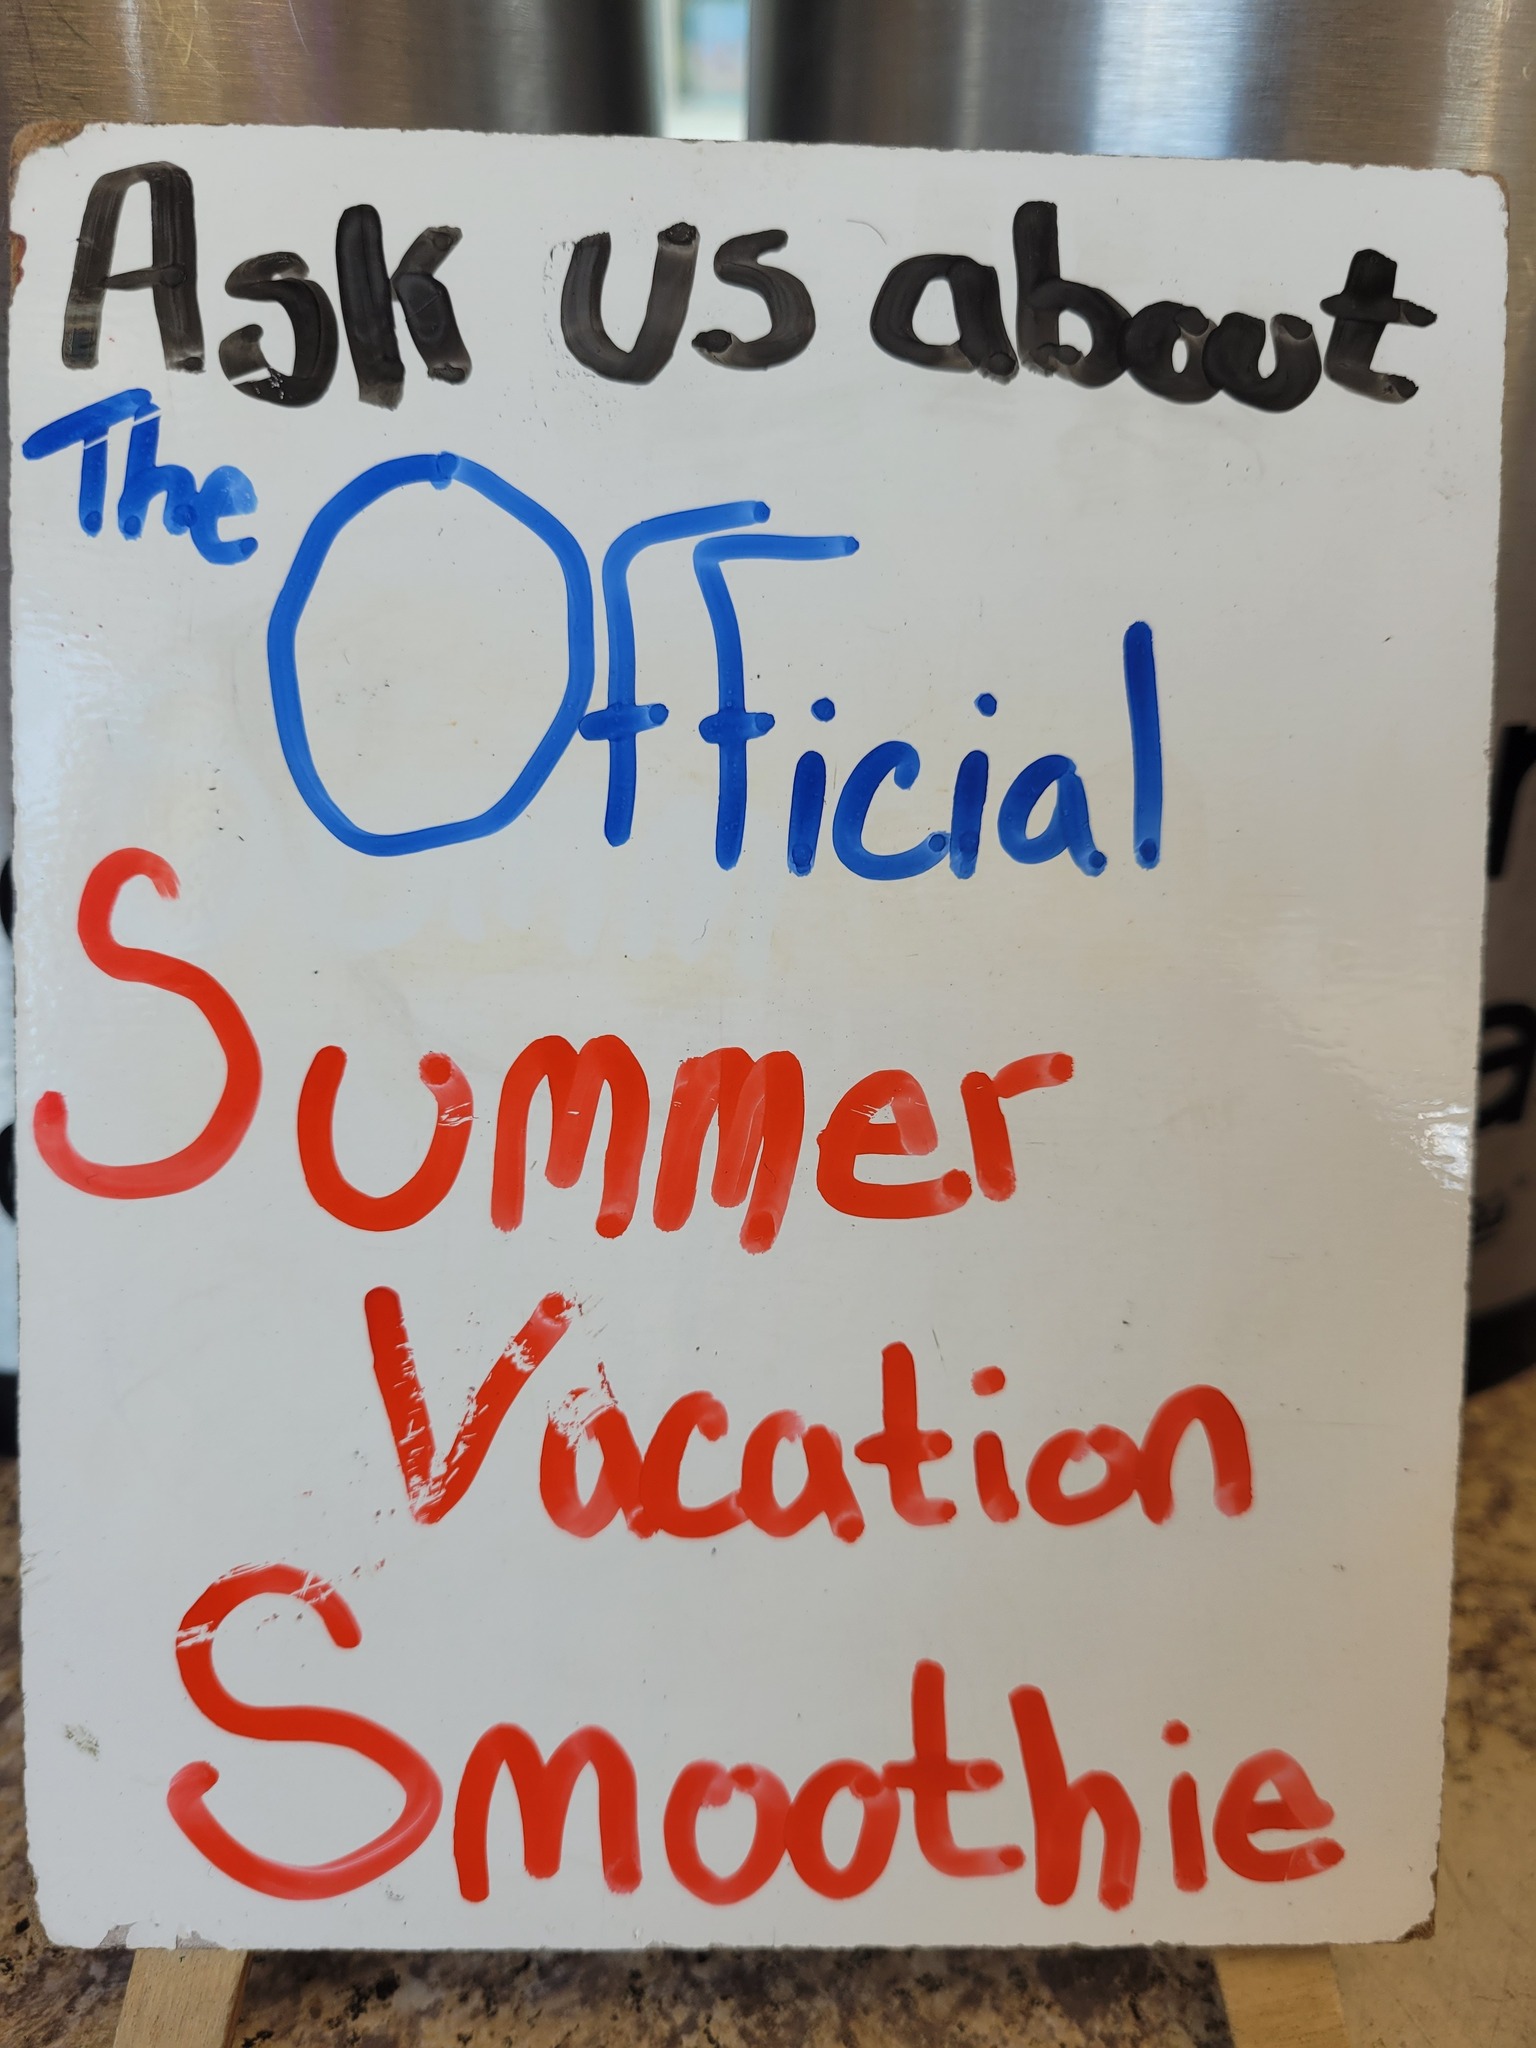 Ask us about
The Official
Summer
Vacation
Smoothie